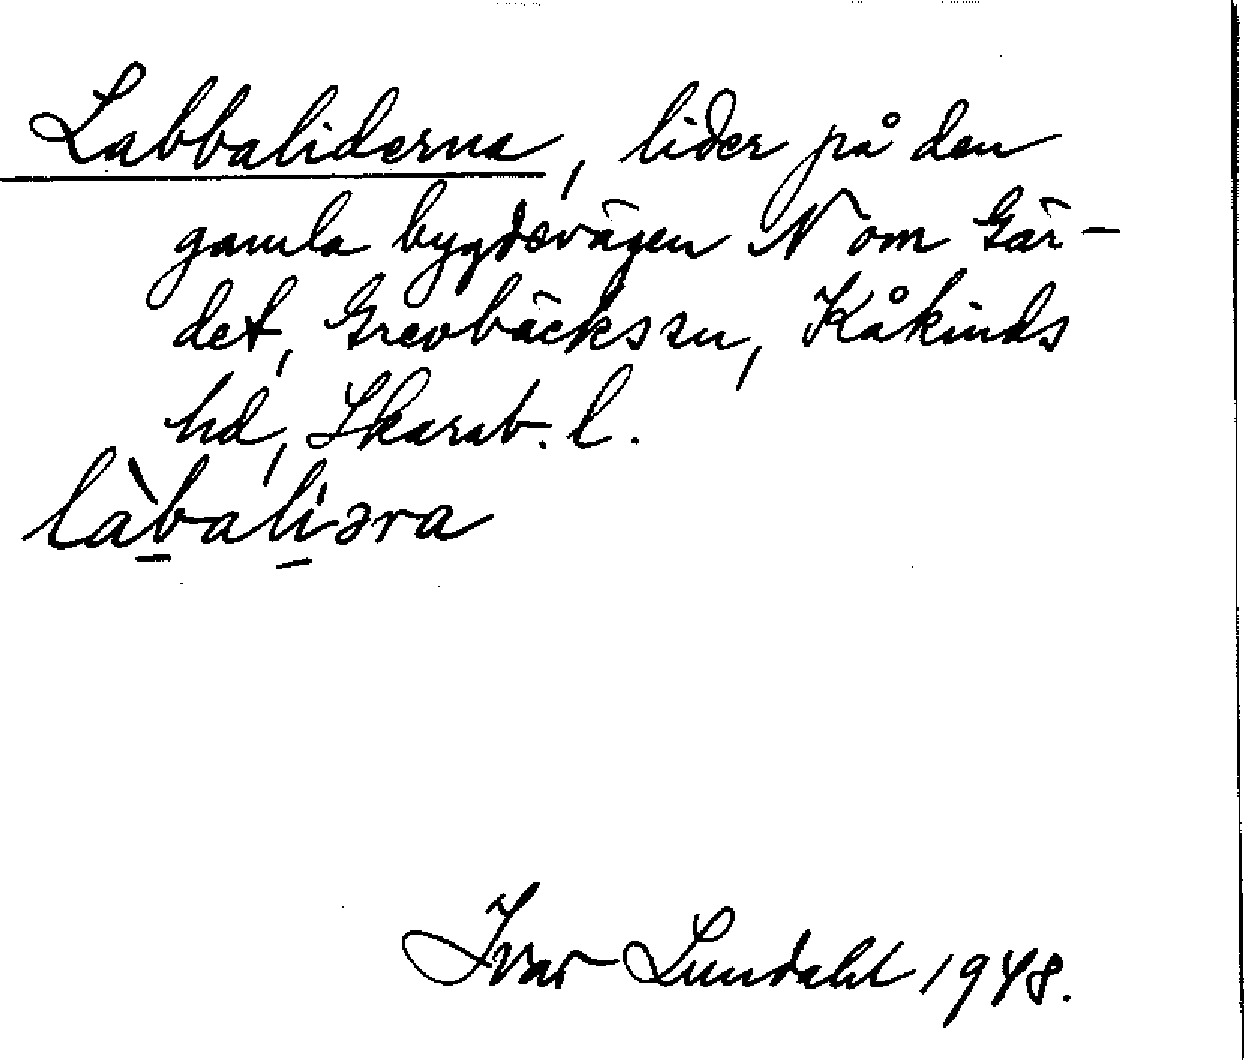 Labbaliderna, lider på den
gamla bygdevägen N om Gär-
det, Grevbäcks sn, Kåkinds
hd, Skarab. l.
làbaliəra
Ivar Lundahl 1948.